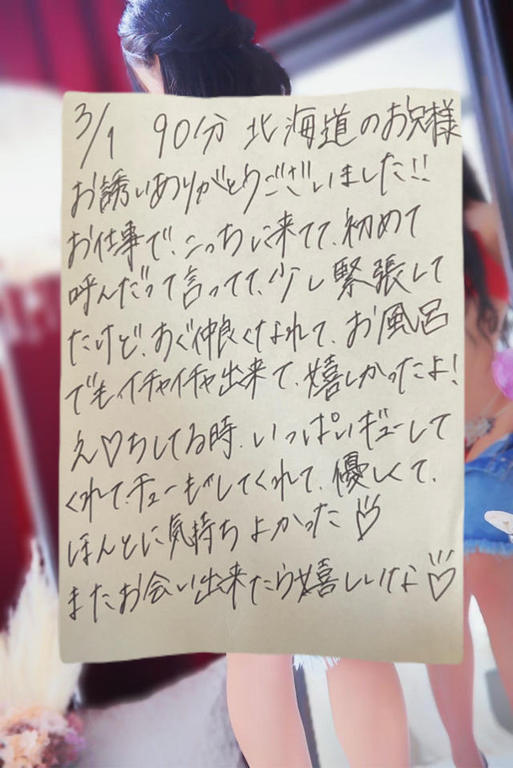 3/1 90分 北海道のお客様
お誘いありがとうございました!!
お仕事で、こっちに来てて、初めて
呼んだって言ってて、少し緊張して
たけど、すぐ仲良くなれて、お風呂
でもイチャイチャ出来て、嬉しかったよ!
え♡ちしてる時、いっぱいギューして
くれて、チューもしてくれて、優しくて、
ほんとに気持ちよかった♡
またお会い出来たら嬉しいな♡